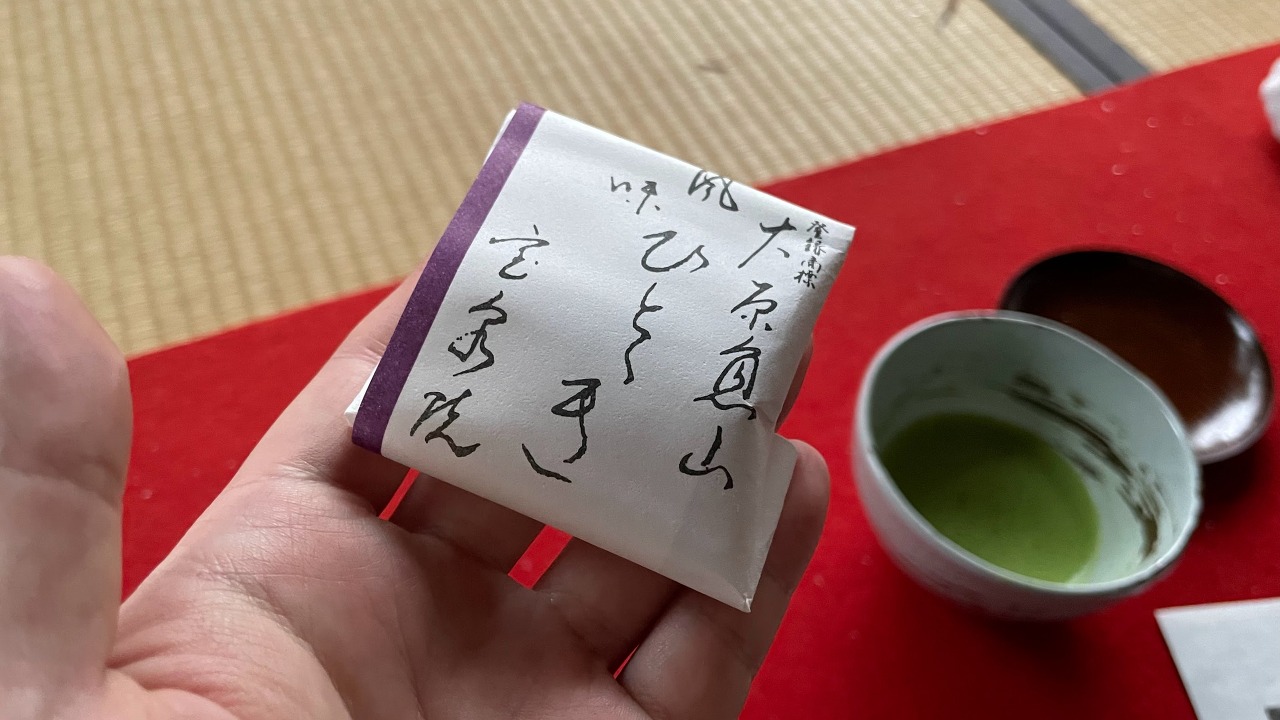 登録商標
大原魚山
風味
ひとゝき
宝泉院